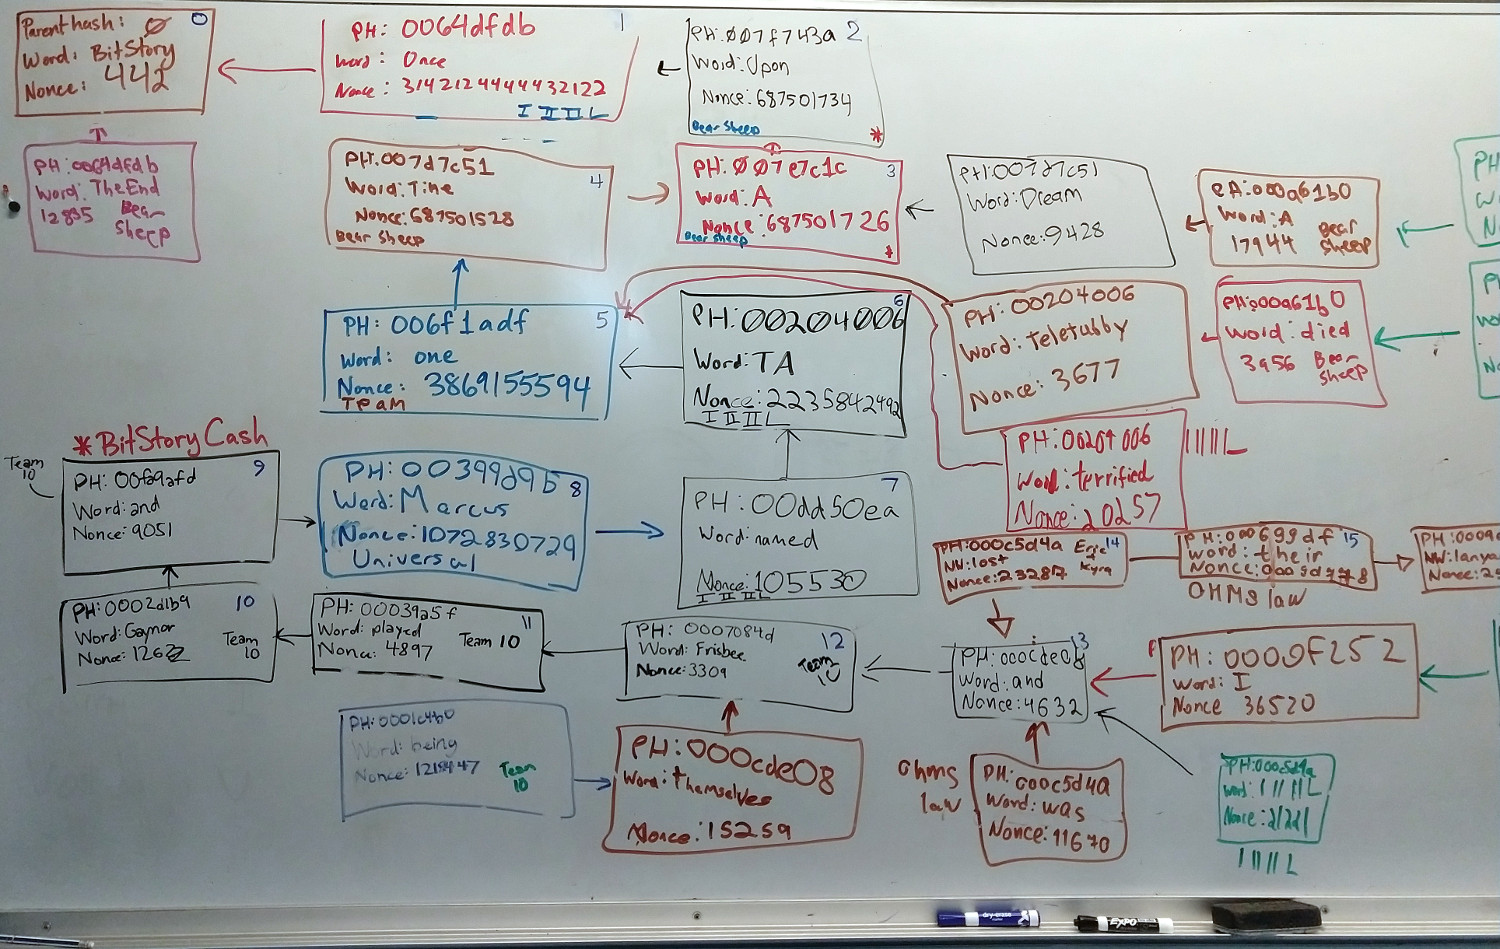 Parent hash: Ø 0
Word: BitStory
Nonce: 442
PH: 0064dfdb 1
Word: Once
Nonce: 3142124444432122
I II II L
PH: 007f743a 2
Word: Upon
Nonce: 687501734
Bear Sheep *
PH: 0064dfdb
Word: TheEnd
12835 Bear
Sheep
PH: 007d7c51
Word: Time 4
Nonce: 687501528
Bear Sheep
PH: 007e7c1c 3
Word: A
Nonce: 687501726
Bear Sheep *
PH: 007d7c51
Word: Dream
Nonce: 9428
PH: 000a61b0
Word: A
17944 Bear
Sheep
PH
PH: 006f1adf 5
Word: one
Nonce: 3869155594
TEAM
6
PH: 00204006
Word: TA
Nonce: 2235842492
I II II L
PH: 00204006
Word: Teletubby
Nonce: 3677
PH: 00a61b0
Word: died
3956 Bear
Sheep
PH
* BitStory Cash
Team
10
PH: 00fa9afd 9
Word: and
Nonce: 9051
PH: 00399d9b 8
Word: Marcus
Nonce: 1072830729
Universal
7
PH: 00dd50ea
Word: named
Nonce: 105530
I II II L
PH: 00204006
Word: terrified
Nonce: 20257
I II II L
PH: 000c5d4a Eric 14
NW: lost Kyra
Nonce: 23287
PH: 000699df 15
Word: their
OHMS law
PH: 0009
NW: lanya
Nonce: 2
PH: 0002d1b9 10
Word: Gaynor
Team
10
PH: 00039a5f 11
Word: played
Nonce: 4897
Team 10
PH: 0007084d 12
Word: Frisbee
Nonce: 3309
Team
10
13
PH: 000cde08
Word: and
Nonce: 4632
PH: 0009F252
Word: I
Nonce 36520
PH: 0001c4b0
Word: being
Nonce: 1218447
Team
10
PH: 000cde08
Word: themselves
Nonce: 15259
Ohms
law
PH: 000c5d4a
Word: was
Nonce: 11670
PH: 000c5d4a
Word: I II II L
I II II L
dry-erase
EXPO